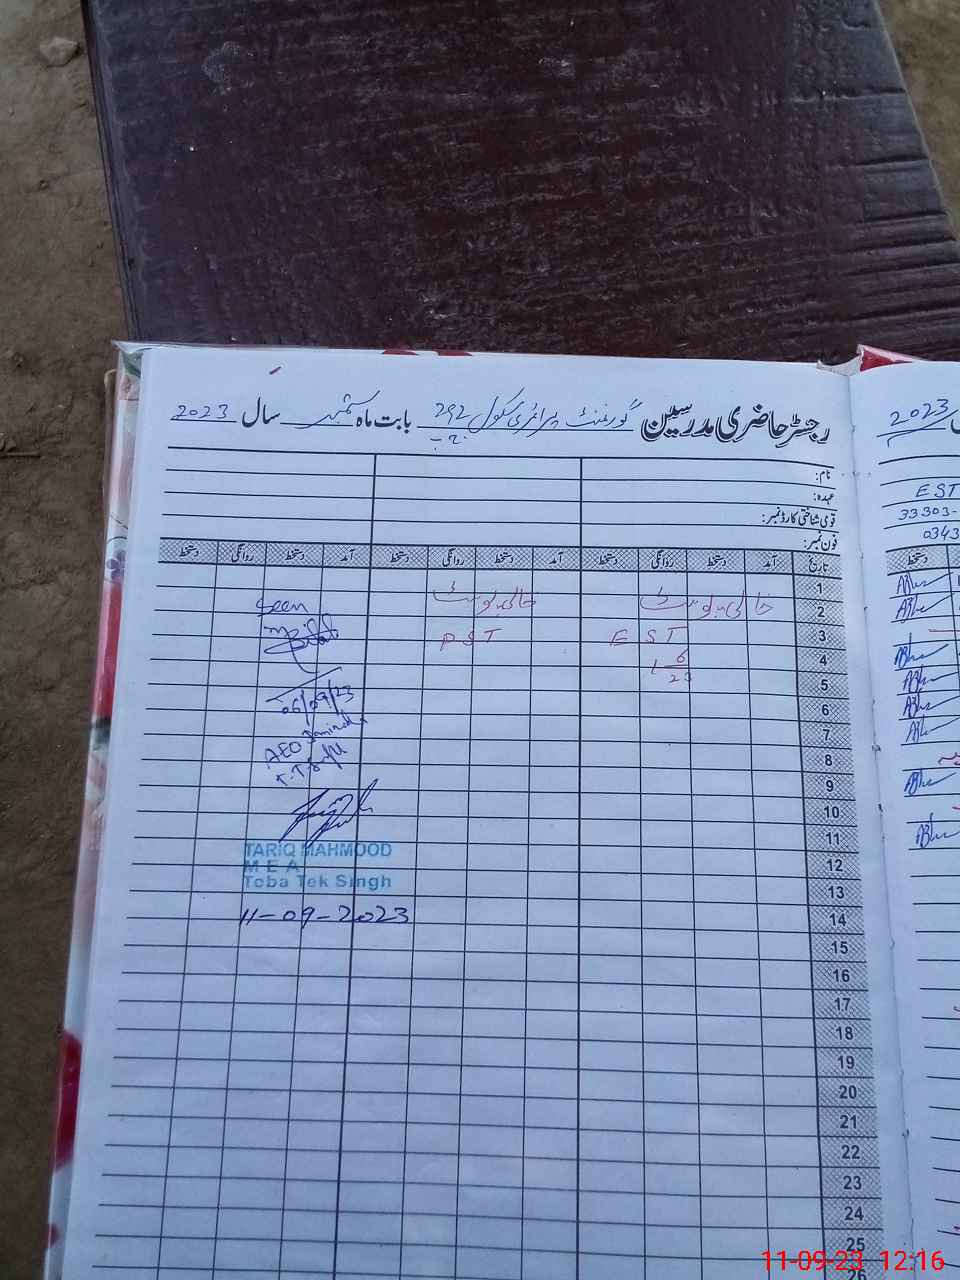 رجسٹر حاضری مدرسین گورنمنٹ پرائمری سکول 292 بابت ماہ ستمبر سال 2023
ج۔ب
نام:
عہدہ:
قومی شناختی کارڈ نمبر:
فون نمبر:
تاریخ آمد دستخط روانگی دستخط آمد دستخط روانگی دستخط آمد دستخط روانگی دستخط
1
2
3
4
5
6
7
8
9
10
11
12
13
14
15
16
17
18
19
20
21
22
23
24
25
26
خالی پوسٹ
EST
1 6
23
خالی پوسٹ
PST
Seen
06/09/23
AEO
T.T.Singh
TARIQ MAHMOOD
M E A
Toba Tek Singh
11-09-2023
2023
EST
33303-
0343
دستخط
11-09-23 12:16